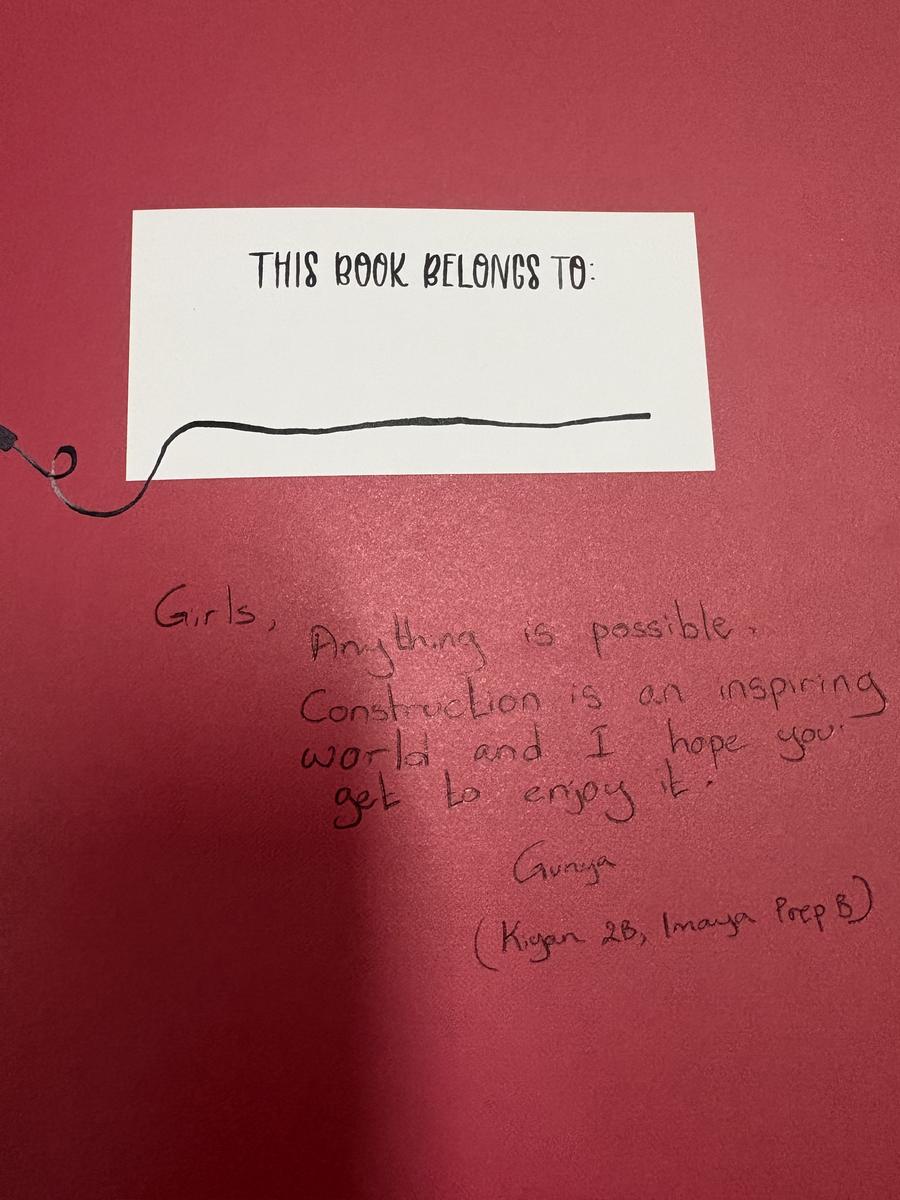 THIS BOOK BELONGS TO:
Girls,
Anything is possible.
Construction is an inspiring
world and I hope you
get to enjoy it.
Gunya
(Kiyan 2B, Imaya Prep B)